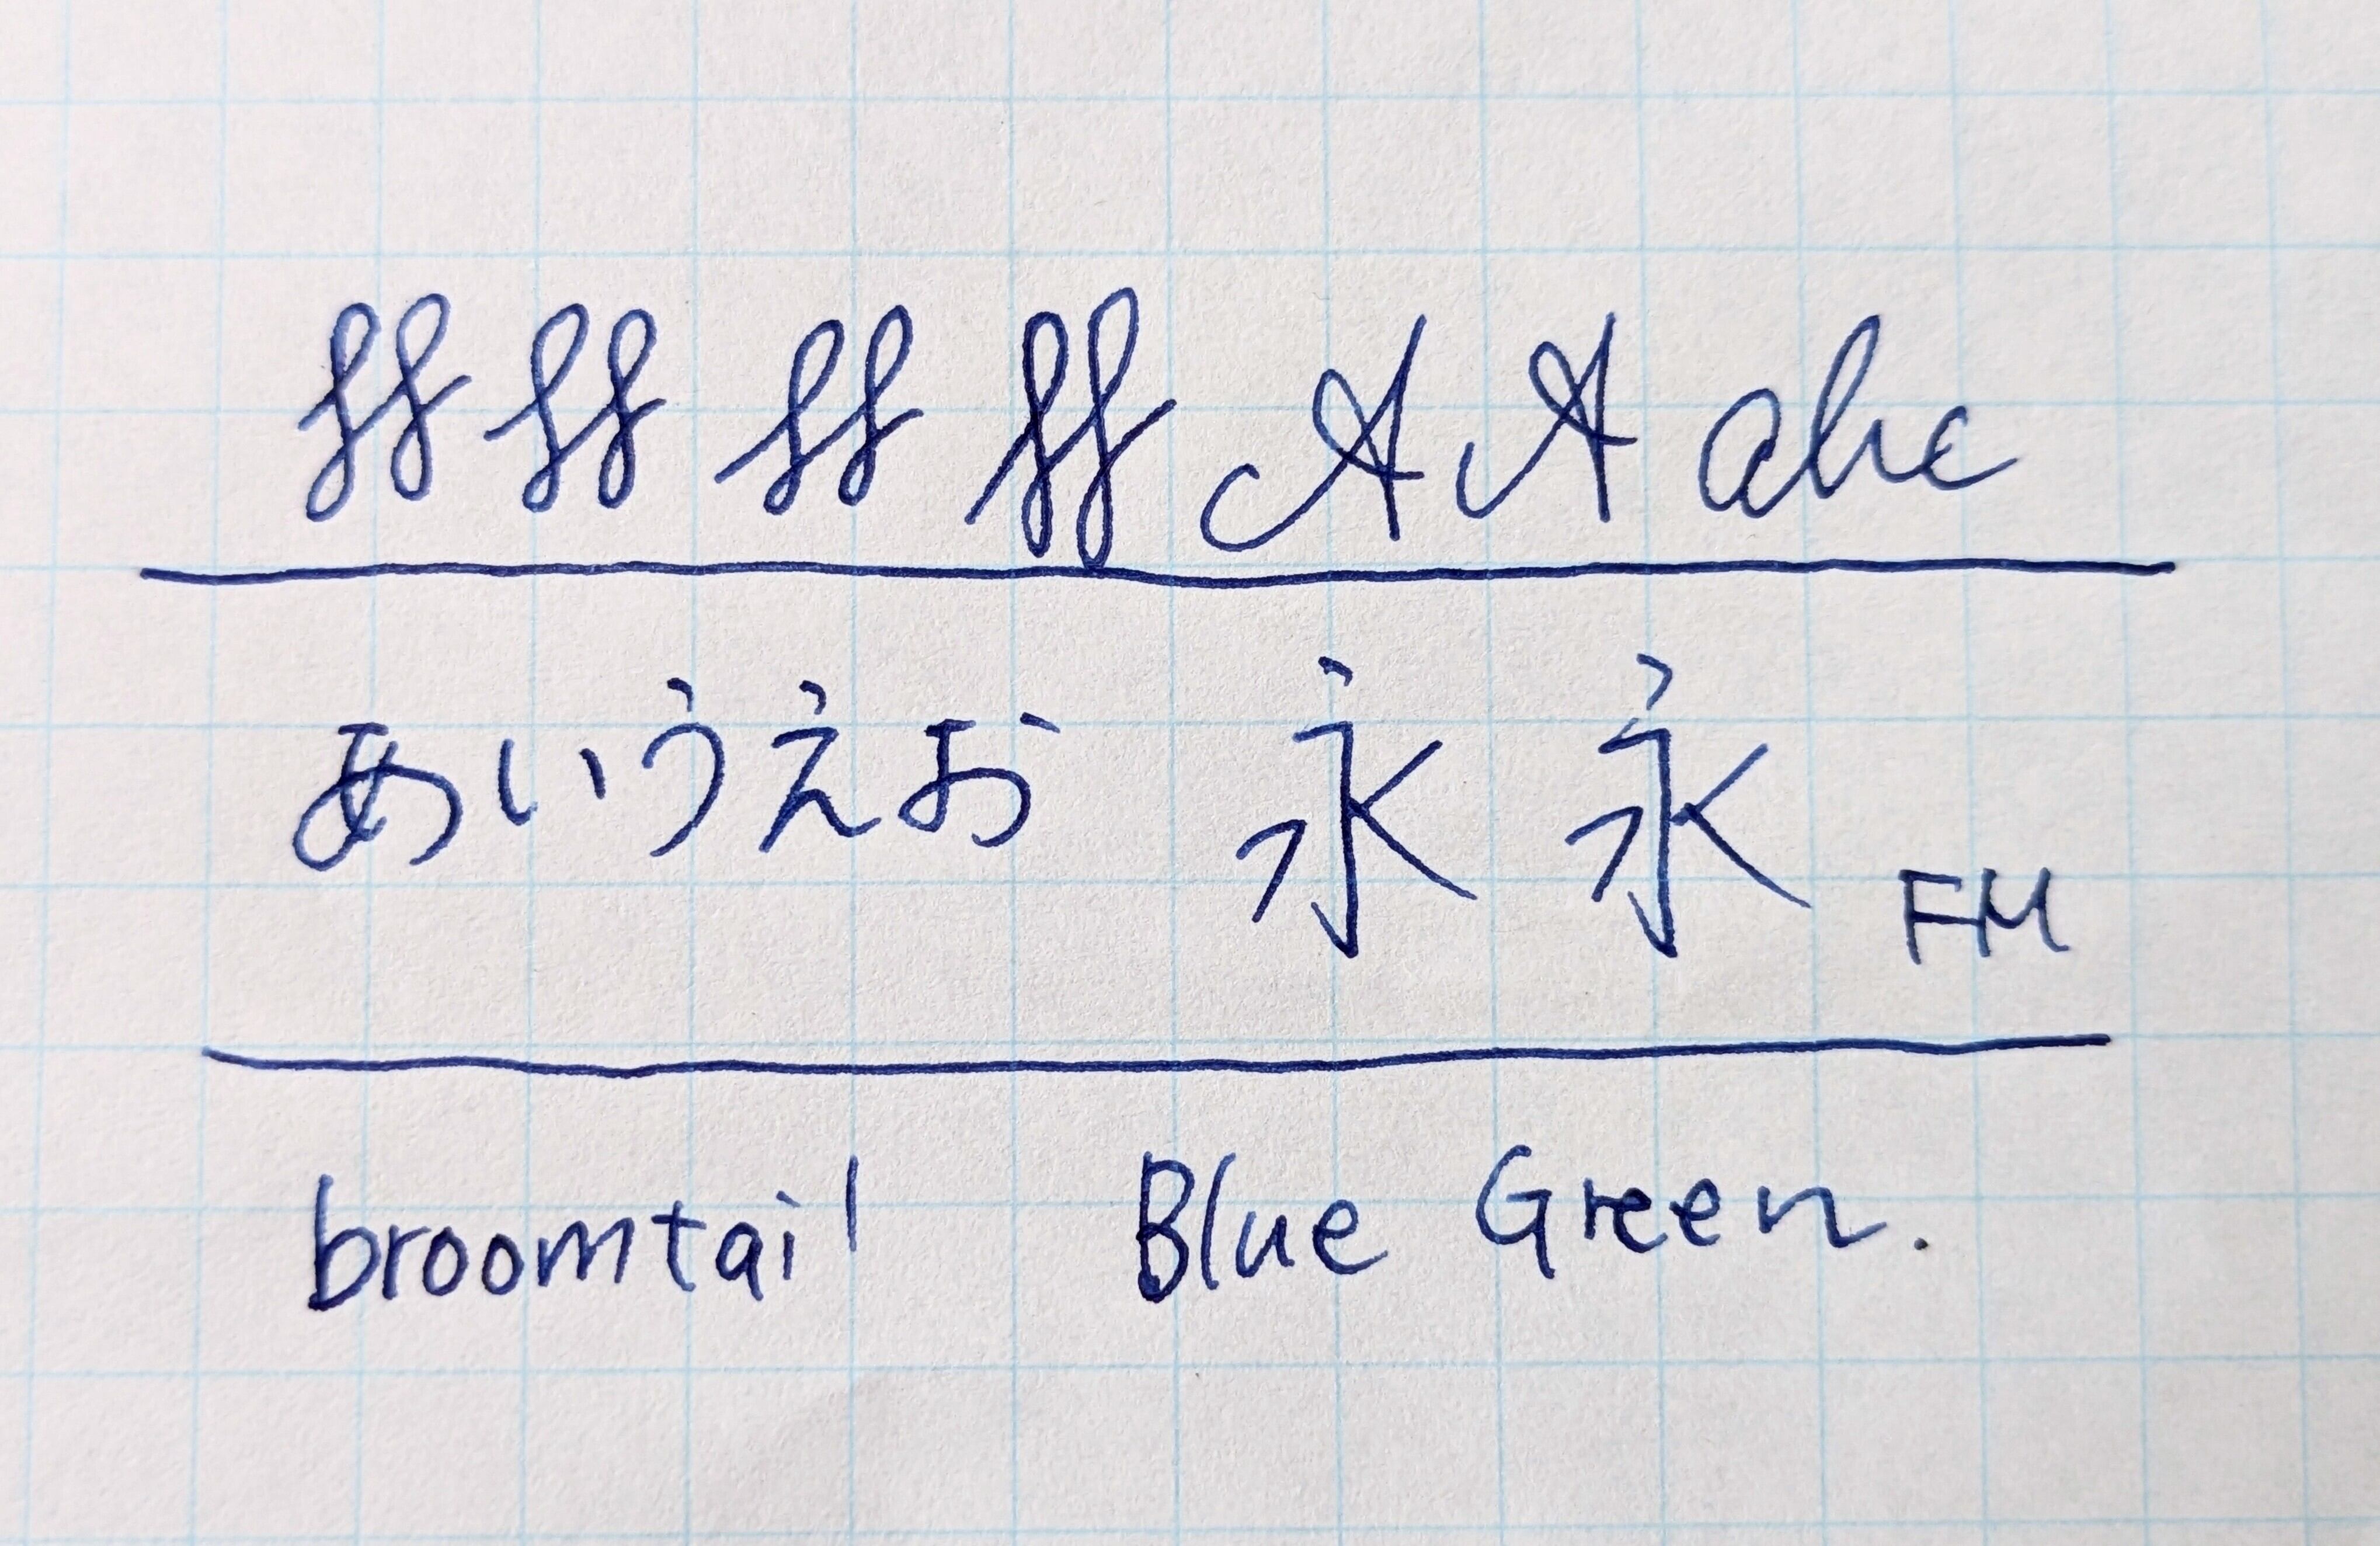 ff ff ff ff A A abc
あいうえお 永 永 FM
broomtail Blue Green.